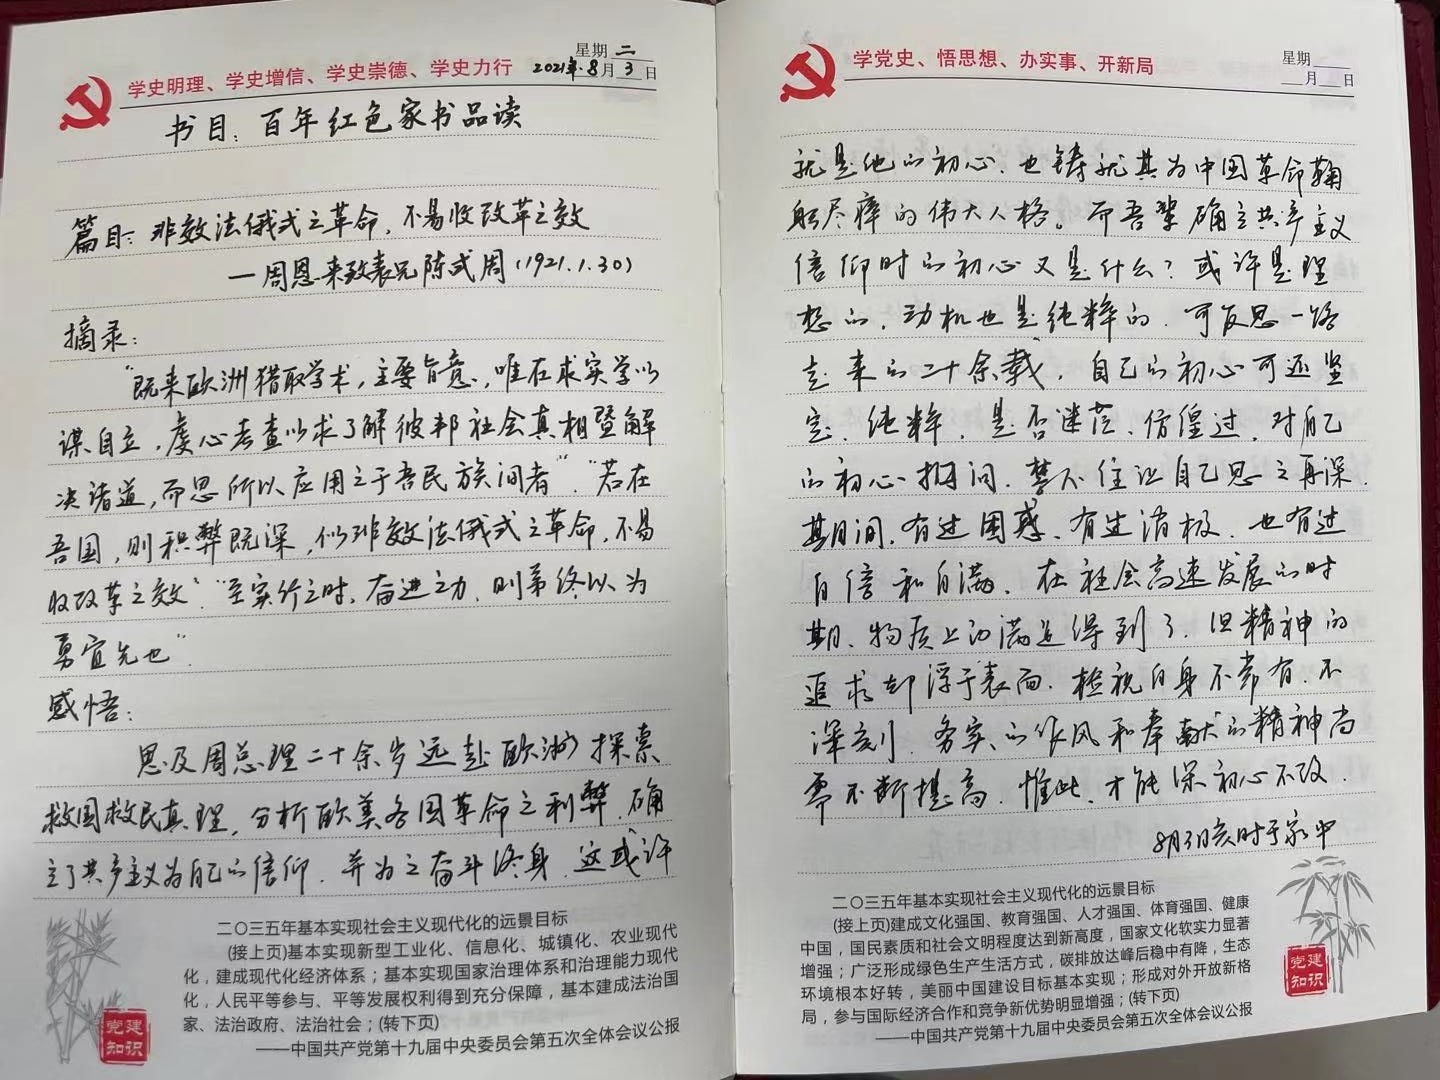 学史明理、学史增信、学史崇德、学史力行
星期 二
2021年.8月3日
书目：百年红色家书品读
篇目：非效法俄式之革命，不易收改革之效
—周恩来致表兄陈式周(1921.1.30)
摘录：
“既来欧洲猎取学术，主要旨意，唯在求实学以
谋自立，虔心考查以求了解彼邦社会真相暨解
决诸道，而思所以应用之于吾民族间者”，“若在
吾国，则积弊既深，似非效法俄式之革命，不易
收改革之效”，“至实行之时，奋进之力，则弟终以为
勇宜先也”.
感悟：
思及周总理二十余岁远赴欧洲探索
救国救民真理，分析欧美各国革命之利弊，确
立了共产主义为自己的信仰，并为之奋斗终身，这或许
二〇三五年基本实现社会主义现代化的远景目标
(接上页)基本实现新型工业化、信息化、城镇化、农业现代
化，建成现代化经济体系；基本实现国家治理体系和治理能力现代
化，人民平等参与、平等发展权利得到充分保障，基本建成法治国
家、法治政府、法治社会；(转下页)
——中国共产党第十九届中央委员会第五次全体会议公报
党建
知识
学党史、悟思想、办实事、开新局
星期
月 日
就是他的初心，也铸就其为中国革命鞠
躬尽瘁的伟大人格。而吾辈确立共产主义
信仰时的初心又是什么？或许是理
想的，动机也是纯粹的，可反思一路
走来的二十余载，自己的初心可还坚
定、纯粹，是否迷茫、彷徨过，对自己
的初心拷问，禁不住让自己思之再深，
其间，有过困惑、有过消极，也有过
自信和自满，在社会高速发展的时
期，物质上的满足得到了，但精神的
追求却浮于表面，检视自身不常有，不
深刻，务实的作风和奉献的精神尚
需不断提高，惟此，才能保初心不改.
8月3日亥时于家中
二〇三五年基本实现社会主义现代化的远景目标
(接上页)建成文化强国、教育强国、人才强国、体育强国、健康
中国，国民素质和社会文明程度达到新高度，国家文化软实力显著
增强；广泛形成绿色生产生活方式，碳排放达峰后稳中有降，生态
环境根本好转，美丽中国建设目标基本实现；形成对外开放新格
局，参与国际经济合作和竞争新优势明显增强；(转下页)
——中国共产党第十九届中央委员会第五次全体会议公报
党建
知识